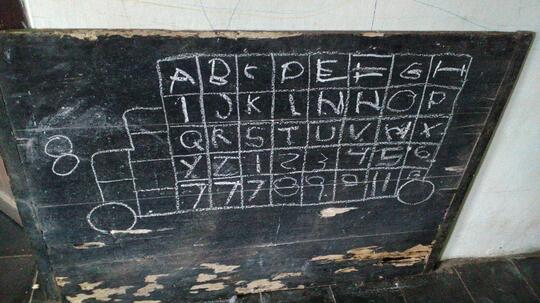 A B C D E F G H
I J K L N N O P
Q R S T U V W X
Y Z 1 2 3 4 5 6
7 7 7 8 9 0 11
8